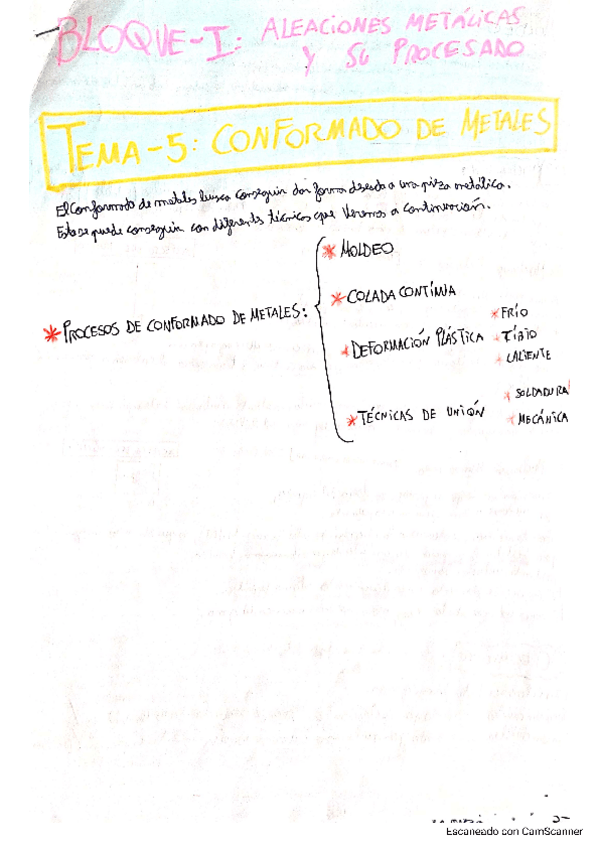 BLOQUE-I: ALEACIONES METÁLICAS
Y SU PROCESADO
TEMA-5: CONFORMADO DE METALES
El conformado de metales busca conseguir dar forma deseada a una pieza metálica.
Esto se puede conseguir con diferentes técnicas que veremos a continuación.
* PROCESOS DE CONFORMADO DE METALES:
* MOLDEO
* COLADA CONTINUA
* DEFORMACIÓN PLÁSTICA
* FRÍO
* TIBIO
* CALIENTE
* TÉCNICAS DE UNIÓN
* SOLDADURA
* MECÁNICA
Escaneado con CamScanner